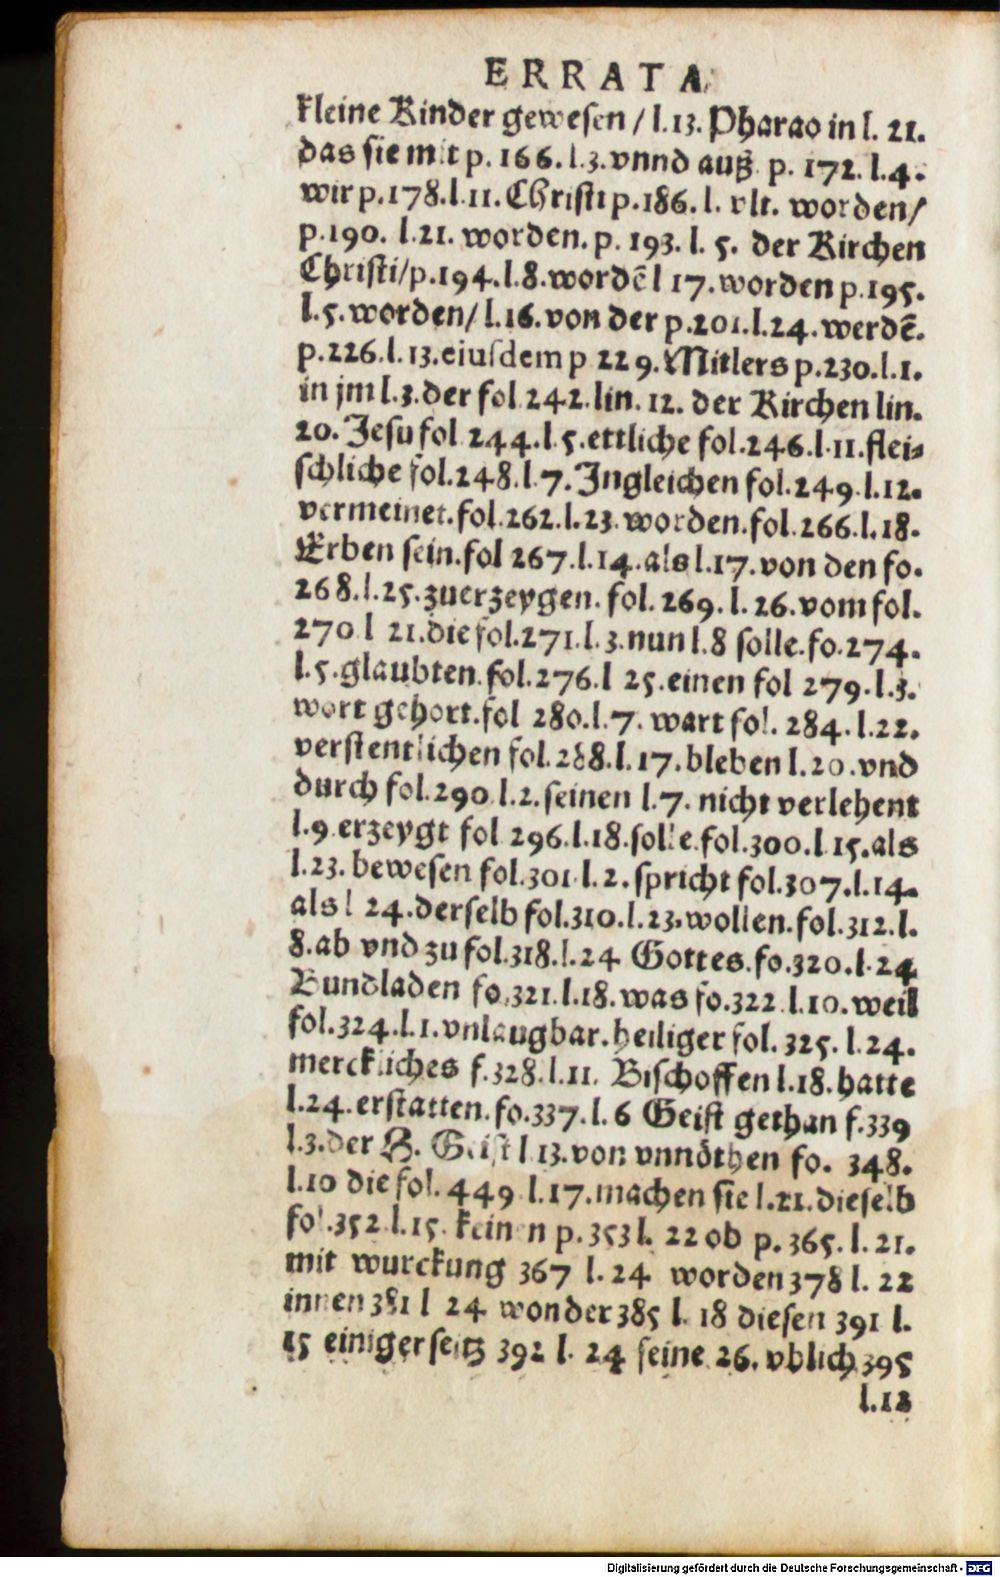 ERRATA
kleine Kinder gewesen / l.13. Pharao in l. 21.
das sie mit p. 166. l.3. vnnd auß p. 172. l.4.
wir p.178.l.11. Christi p.186. l. vlt. worden/
p.190. l.21. worden. p. 193. l. 5. der Kirchen
Christi/p.194.l.8.wordē l 17.worden p.195.
l.5.worden/ l.16.von der p.201.l.24.werdē.
p.226.l.13.eiusdem p 229.Mitlers p.230.l.1.
in jm l.3.der fol 242.lin. 12. der Kirchen lin.
20. Jesu fol 244.l 5.ettliche fol.246.l.11.flei-
schliche fol.248.l 7.Ingleichen fol.249.l.12.
vermeinet.fol.262.l.23.worden.fol.266.l.18.
Erben sein.fol 267.l.14.als l.17.von den fo.
268.l.25.zuerzeygen. fol. 269. l. 26.vom fol.
270 l 21.die fol.271.l.3.nun l.8 solle.fo.274.
l.5.glaubten.fol.276.l 25.einen fol 279.l.3.
wort gehort.fol 280.l.7. wart fol. 284. l.22.
verstentlichen fol.288.l.17.bleben l.20.vnd
durch fol.290.l.2.seinen l.7. nicht verlehent
l.9 erzeygt fol 296.l.18.solle.fol.300.l 15.als
l.23. bewesen fol.301 l.2.spricht fol.307.l.14.
als l 24.derselb fol.310.l.23.wollen.fol.312.l.
8.ab vnd zu fol.318.l.24 Gottes.fo.320.l.24
Bundladen fo.321.l.18.was fo.322 l.10.weil
fol.324.l.1.vnlaugbar.heiliger fol. 325. l.24.
merckliches f.328.l.11. Bischoffen l.18.hatte
l.24.erstatten.fo.337.l.6 Geist gethan f.339
l.3.der H. Geist l 13.von vnnöthen fo. 348.
l.10 die fol. 449 l.17.machen sie l.21.dieselb
fol.352 l.15. keinen p.353 l. 22 ob p.365. l. 21.
mit wurckung 367 l.24 worden 378 l. 22
innen 381 l 24 wonder 385 l. 18 diesen 391 l.
15 einigerseitz 392 l. 24 seine 26. vblich 395
l.12
Digitalisierung gefördert durch die Deutsche Forschungsgemeinschaft - DFG